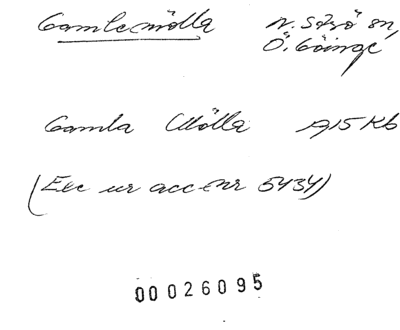 Gamlemölla N. Sörö sn,
Ö. Göinge
Gamla Mölla 1915 Kb
(Exc ur acc nr 5434)
00026095